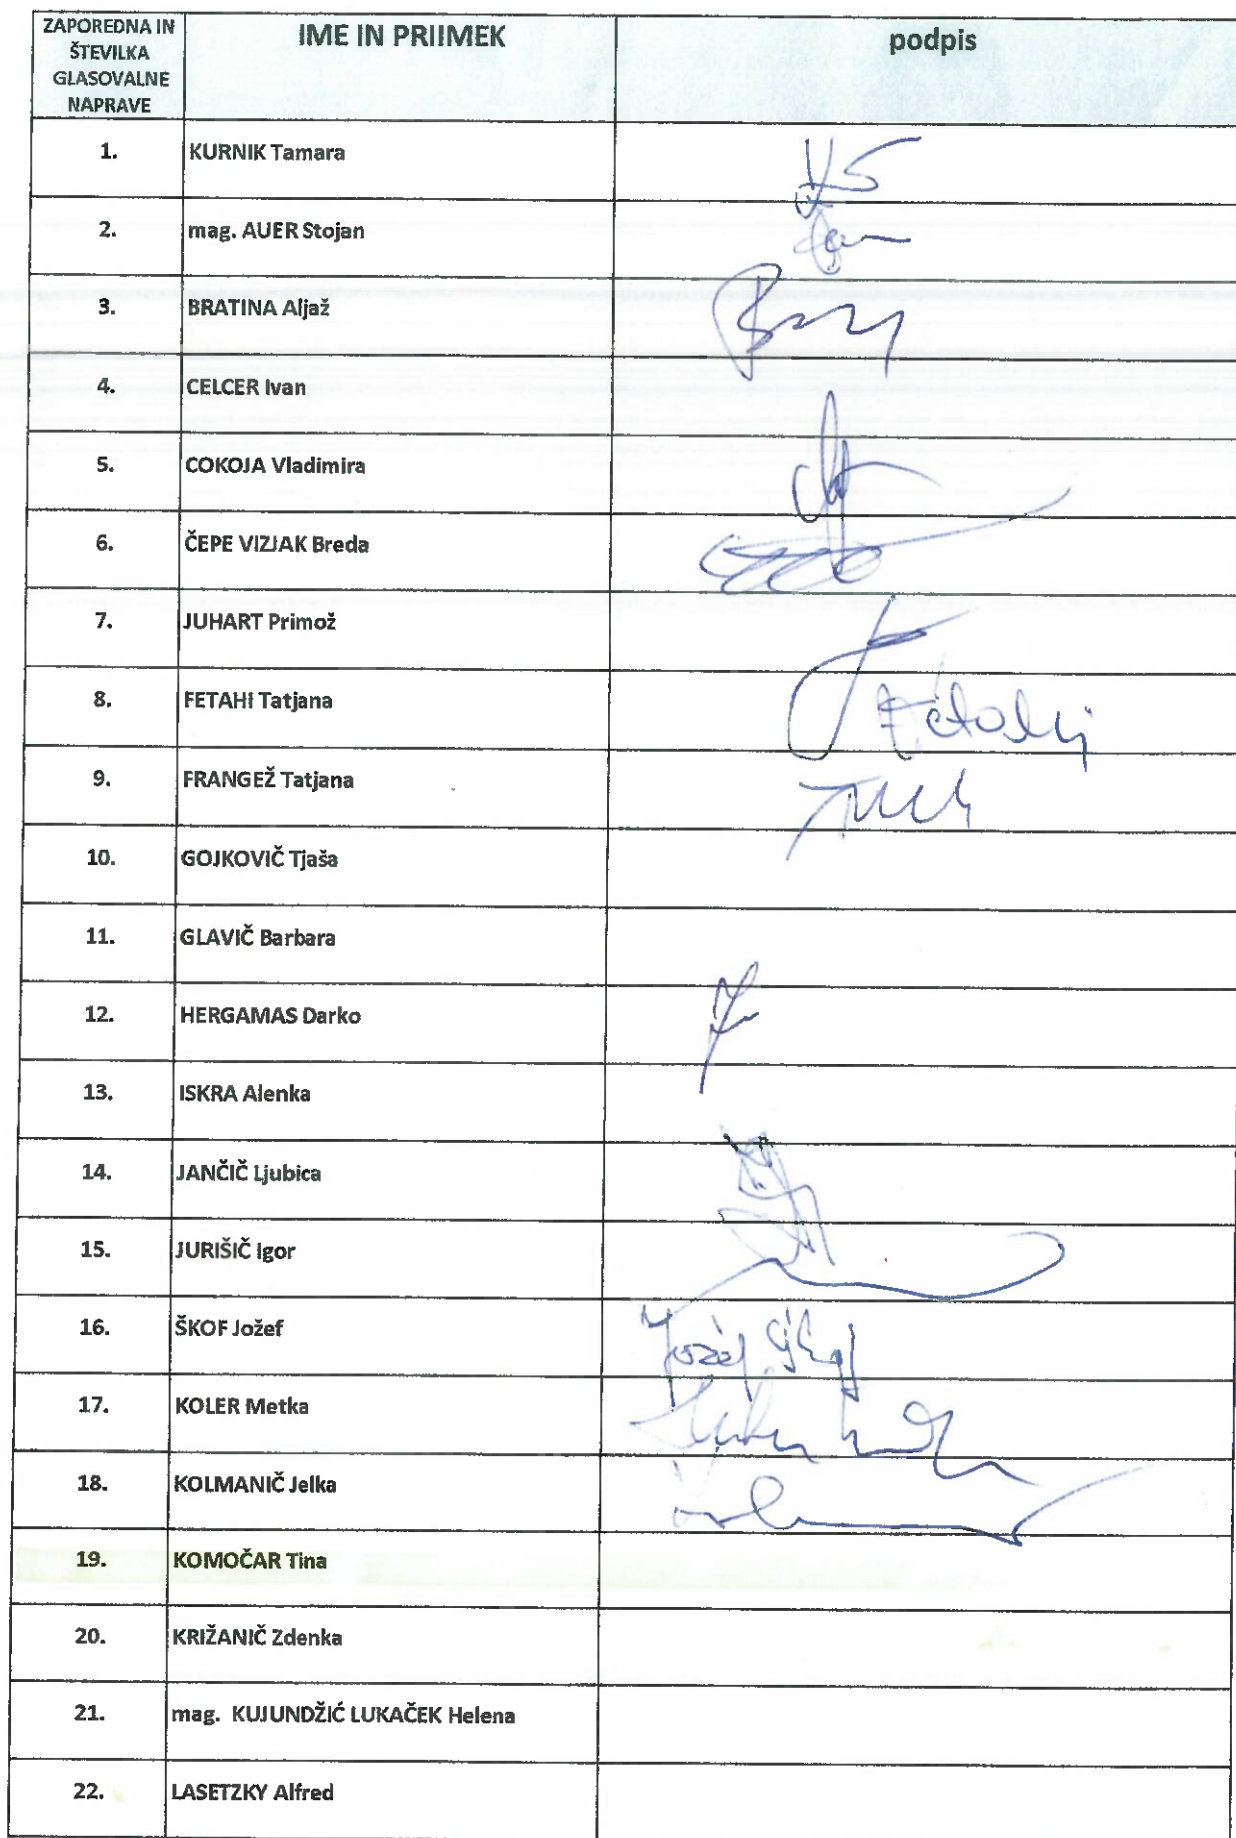 ZAPOREDNA IN
ŠTEVILKA
GLASOVALNE
NAPRAVE
IME IN PRIIMEK
podpis
1. KURNIK Tamara
2. mag. AUER Stojan
3. BRATINA Aljaž
4. CELCER Ivan
5. COKOJA Vladimira
6. ČEPE VIZJAK Breda
7. JUHART Primož
8. FETAHI Tatjana
9. FRANGEŽ Tatjana
10. GOJKOVIČ Tjaša
11. GLAVIČ Barbara
12. HERGAMAS Darko
13. ISKRA Alenka
14. JANČIČ Ljubica
15. JURIŠIČ Igor
16. ŠKOF Jožef
17. KOLER Metka
18. KOLMANIČ Jelka
19. KOMOČAR Tina
20. KRIŽANIČ Zdenka
21. mag. KUJUNDŽIĆ LUKAČEK Helena
22. LASETZKY Alfred